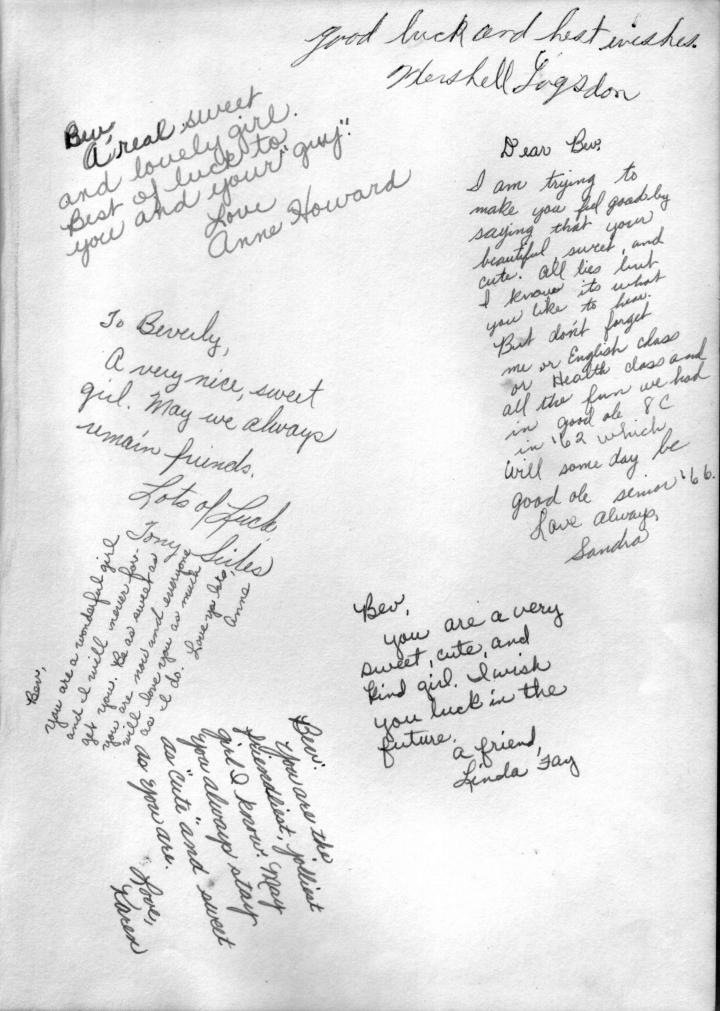 Good luck and best wishes.
Mershell Logsdon
Bev,
A real sweet
and lovely girl.
Best of luck to
you and your "guy".
Love
Anne Howard
Dear Bev,
I am trying to
make you feel good by
saying that your
beautiful, sweet, and
cute. All lies but
I know its what
you like to hear.
But don't forget
me or English class
or Health class and
all the fun we had
in good ole 8C
in '62 which
will some day be
good ole senior '66.
Love always,
Sandra
To Beverly,
A very nice, sweet
girl. May we always
remain friends.
Lots of Luck,
Tony
Bev,
you are a wonderful girl
and I will never for-
get you. Be as sweet as
you are now and everyone
will love you as much
as I do. Love ya lots,
Anne
Bev,
you are a very
sweet, cute, and
kind girl. I wish
you luck in the
future.
a friend,
Linda Fay
Bev.
You are the
friendliest, jolliest
girl I know. May
you always stay
as "cute" and sweet
as you are.
Love,
Karen